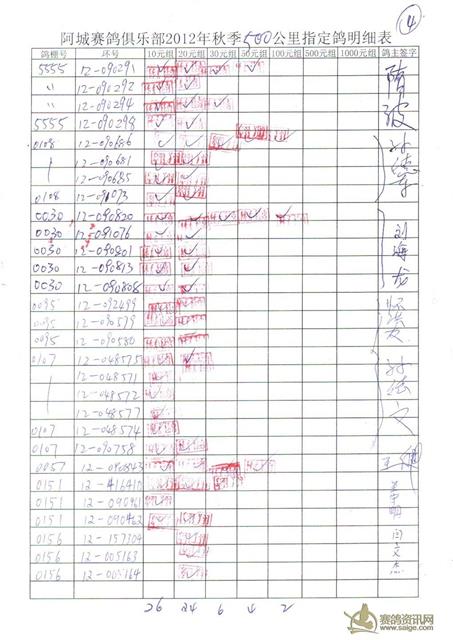 ④
阿城赛鸽俱乐部2012年秋季500公里指定鸽明细表
鸽棚号 环号 10元组 20元组 30元组 50元组 100元组 500元组 1000元组 鸽主签字
5555 12-090291
〃 12-090292
〃 12-090294
5555 12-090298
0108 12-090686
12-090681
12-090685
0108 12-091073
0030 12-090820
0030 12-091076
0030 12-090801 刘海龙
0030 12-090813
0030 12-090808
0095 12-092499
0095 12-090579
0095 12-090580
0107 12-048575
12-048571
12-048572
12-048577
0107 12-048574
0107 12-090758
0057 12-090843
0151 12-416410
0151 12-090961
0151 12-090962
0156 12-157304 闫文杰
0156 12-005163
0156 12-005164
26 24 6 4 2
赛鸽资讯网
www.saige.com